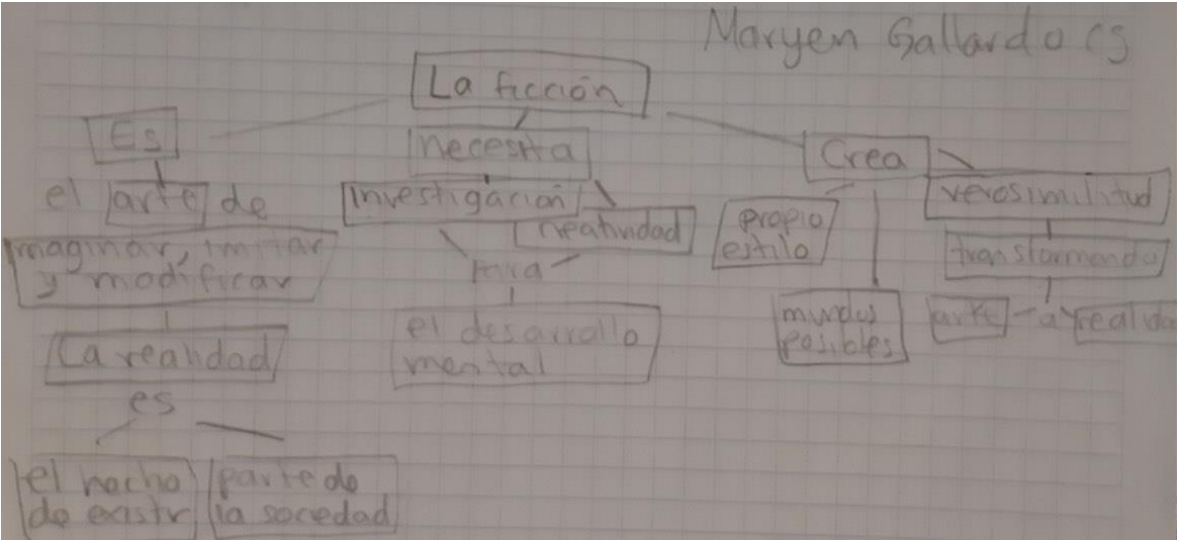 Maryen Gallardo CS
La ficción
Es
necesita
Crea
el arte de
imaginar, imitar
y modificar
La realidad
es
el hecho
de existir
parte de
la sociedad
investigación
creatividad
Para
el desarrollo
mental
propio
estilo
mundos
posibles
verosimilitud
transformando
arte - a realida